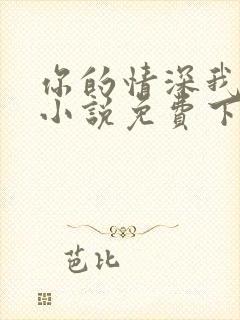 你的情深我
小说免費下
芭比